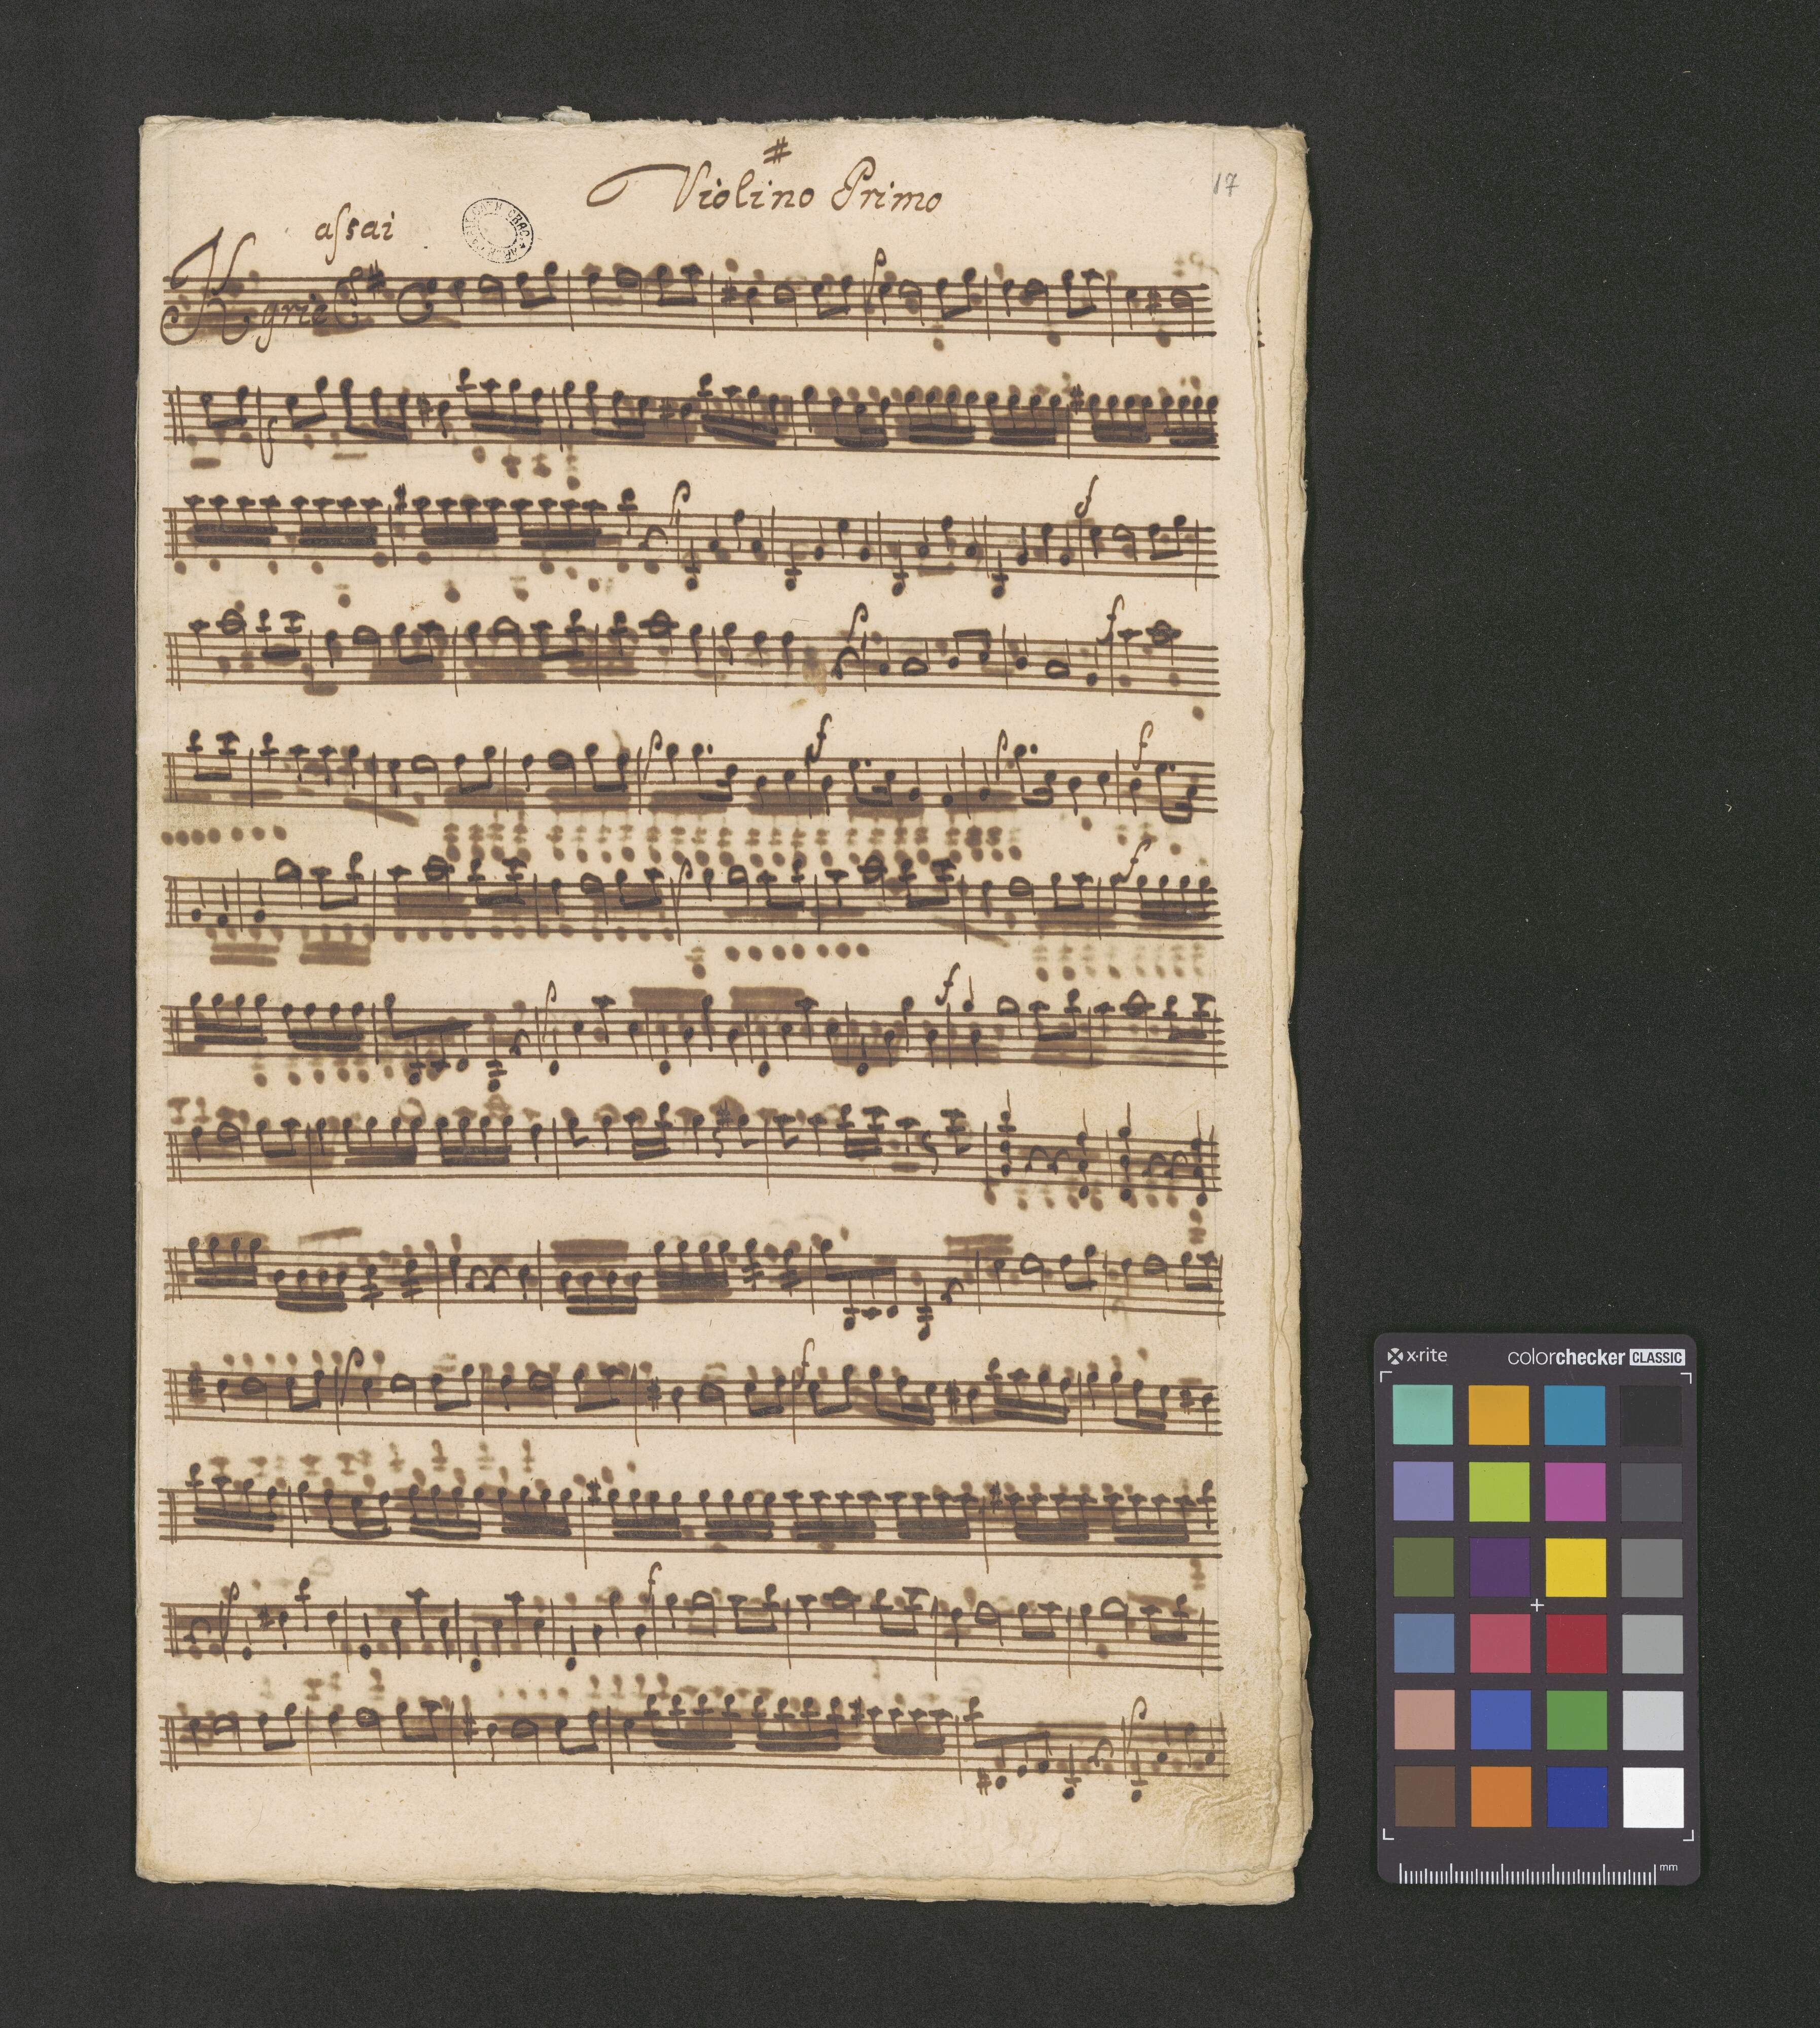 #
Violino Primo
17
aſsai
Kyrie
p
f
p
f
p
f
p
f
p
f
p
f
p
f
p
f
p
f
p
x·rite
colorchecker CLASSIC
mm